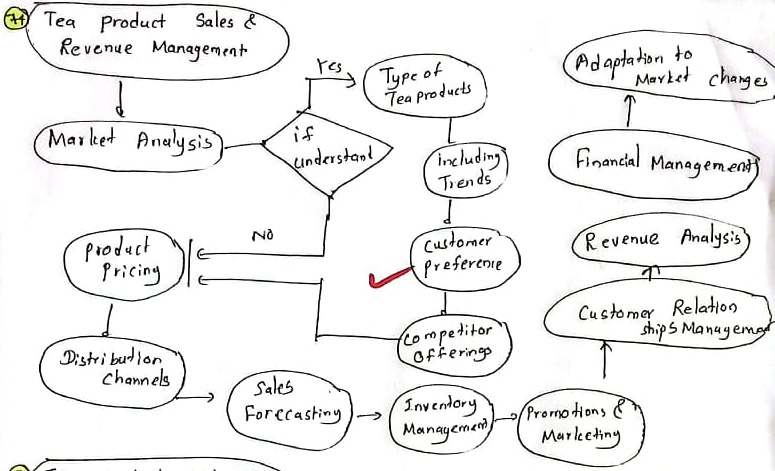 Tea product Sales &
Revenue Management
Market Analysis
if
understand
Yes
Type of
Tea products
including
Trends
Customer
preference
Competitor
Offerings
No
Product
Pricing
Distribution
Channels
Sales
Forecasting
Inventory
Management
Promotions &
Marketing
Customer Relation
ships Managemen
Revenue Analysis
Financial Management
Adaptation to
Market Changes